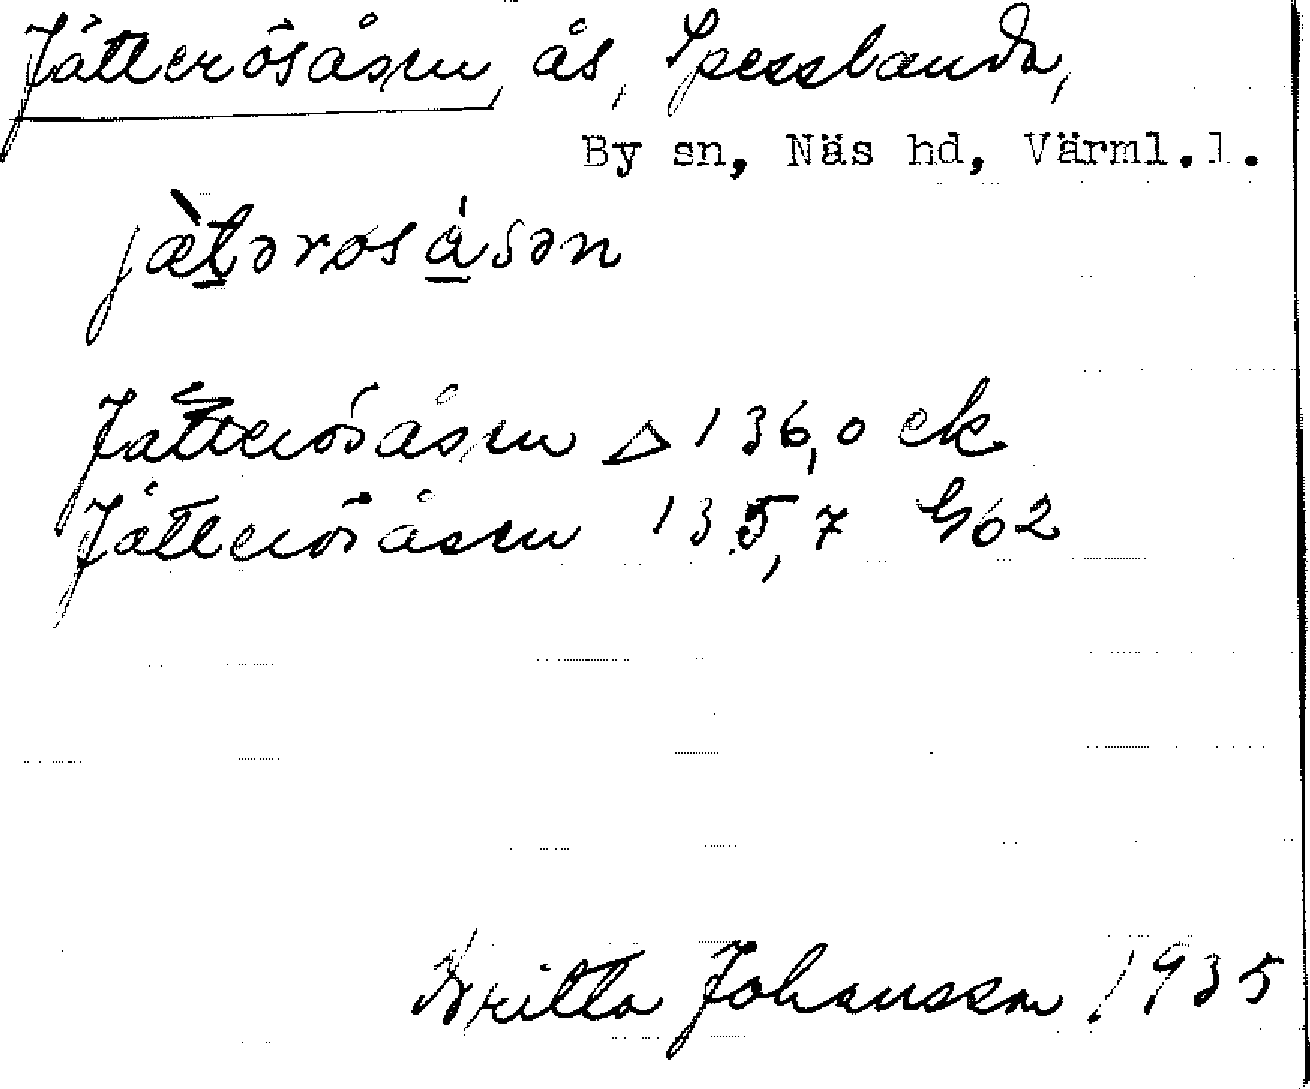 Jätterösåsen, ås, Spesslanda,
By sn, Näs hd, Värml.l.
jæ̀tərøsåsən
Jätterösåsen △ 136,0 ek
Jätterösåsen 135,7 G62
Britta Johansson 1935